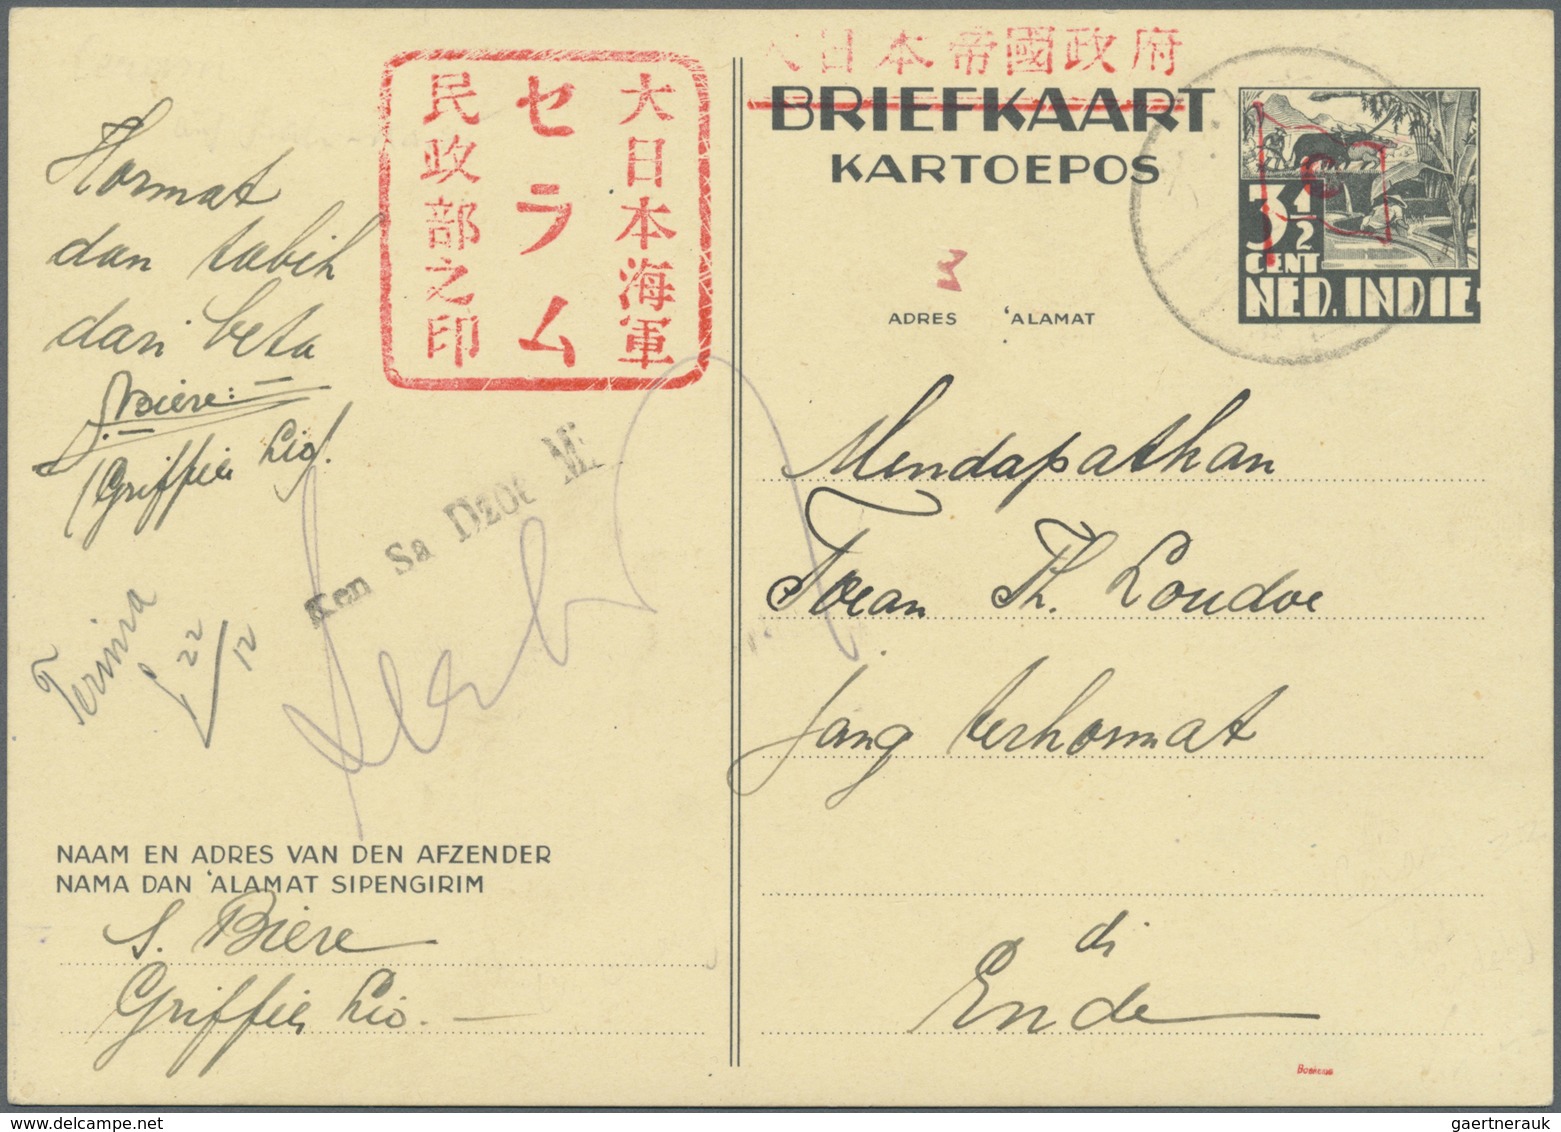 大日本海軍
セラム
民政部之印
日本帝國政府
BRIEFKAART
KARTOEPOS
3½
CENT
NED. INDIE
ADRES 'ALAMAT
Hormat
dan tabih
dari beta
S. Biere:
Griffier Lio.
Ken Sa Dzoe Mi
Terima
22/12
Mendapathan
Toean Th. Loudoe
jang terhormat
di
Ende
NAAM EN ADRES VAN DEN AFZENDER
NAMA DAN 'ALAMAT SIPENGIRIM
S. Biere
Griffier Lio.
gaertnerauk@yahoo.com